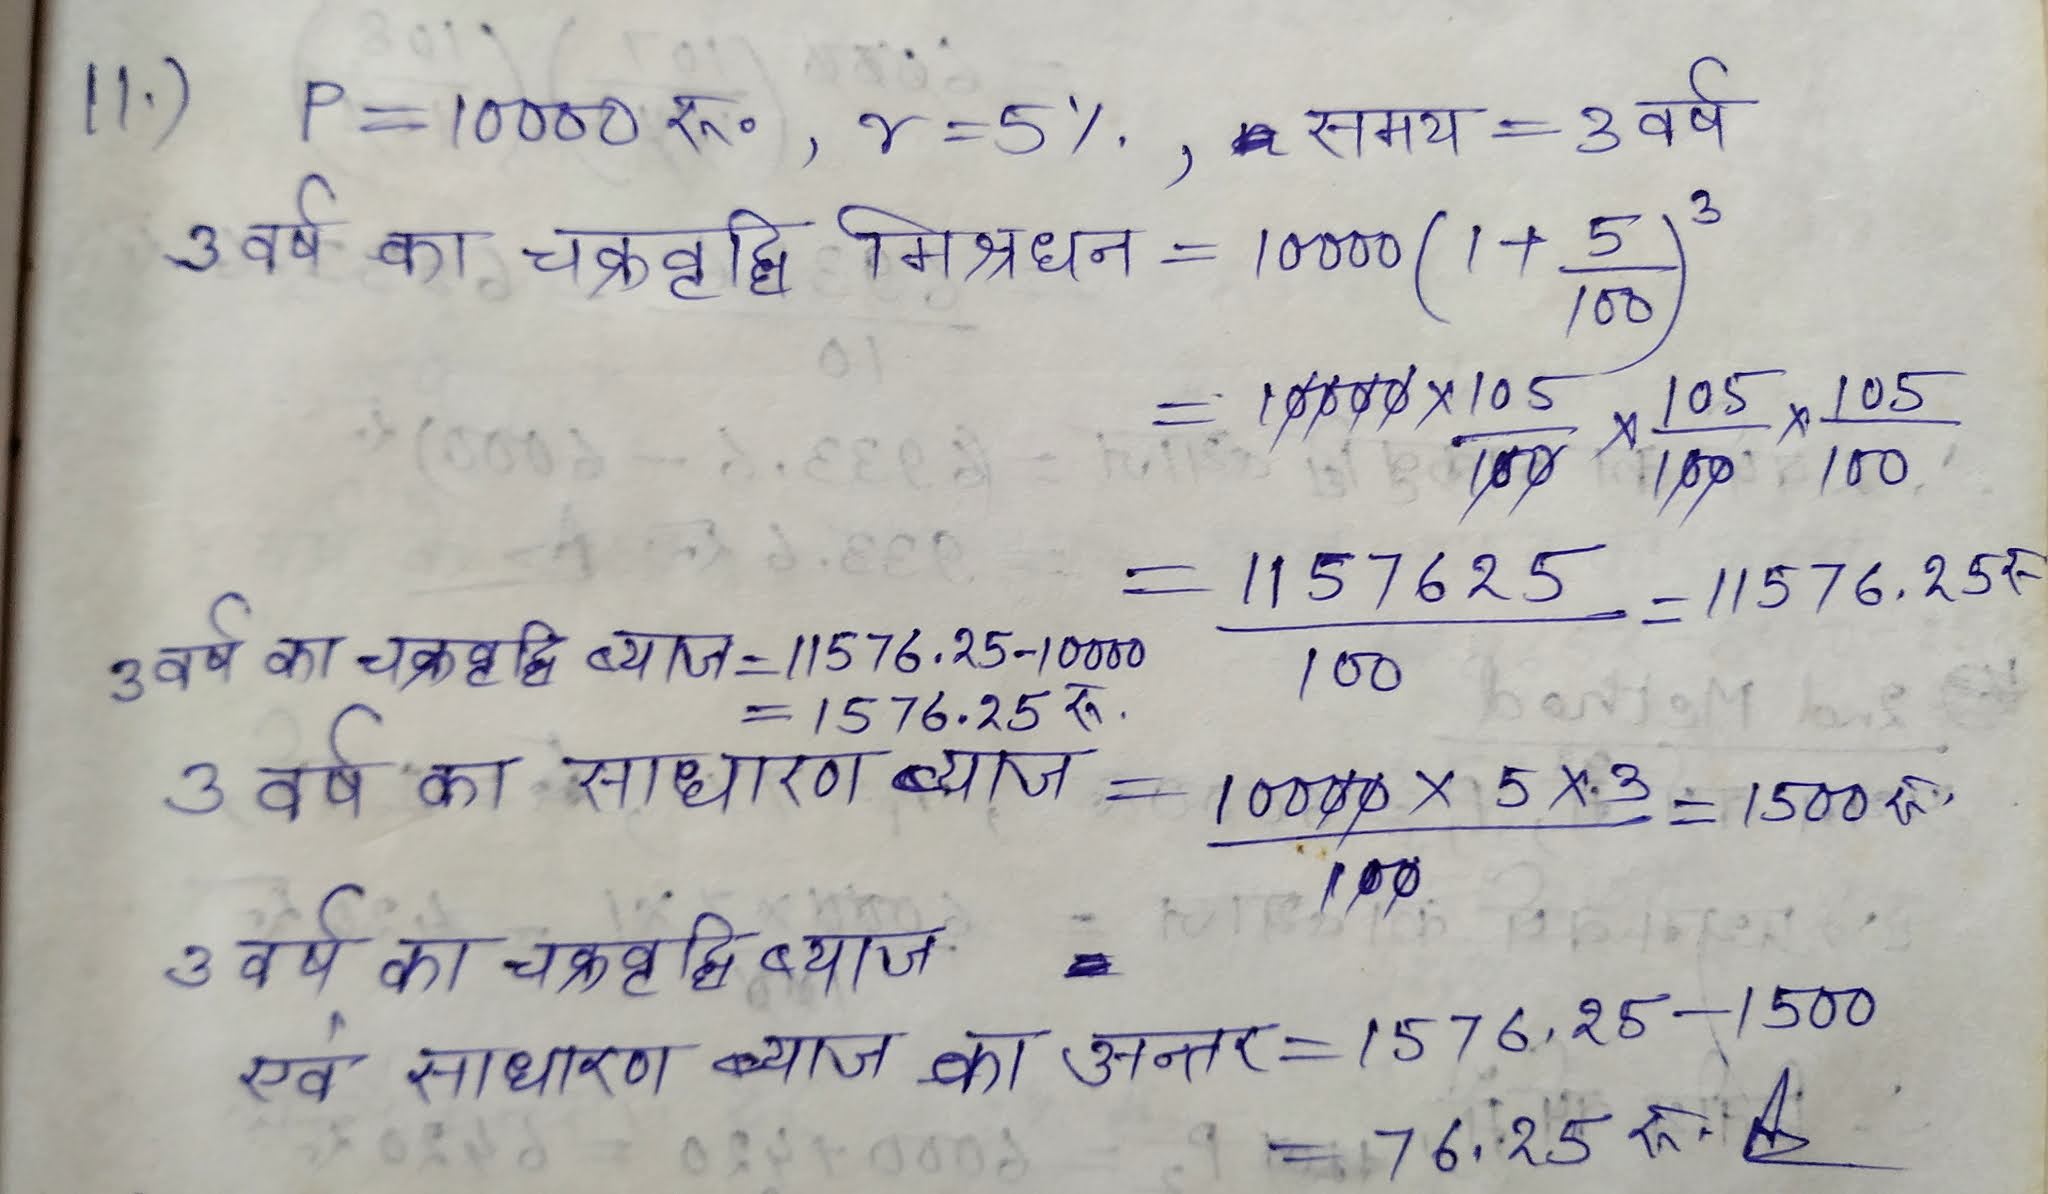 11.) P = 10000 रू०, r = 5%, समय = 3 वर्ष
3 वर्ष का चक्रवृद्धि मिश्रधन = 10000 (1 + 5/100)³
= 10000 × 105/100 × 105/100 × 105/100
= 1157625/100 = 11576.25 रू
3 वर्ष का चक्रवृद्धि ब्याज = 11576.25 - 10000
= 1576.25 रू.
3 वर्ष का साधारण ब्याज = 10000 × 5 × 3/100 = 1500 रू.
3 वर्ष का चक्रवृद्धि ब्याज
एवं साधारण ब्याज का अन्तर = 1576.25 - 1500
= 76.25 रू.